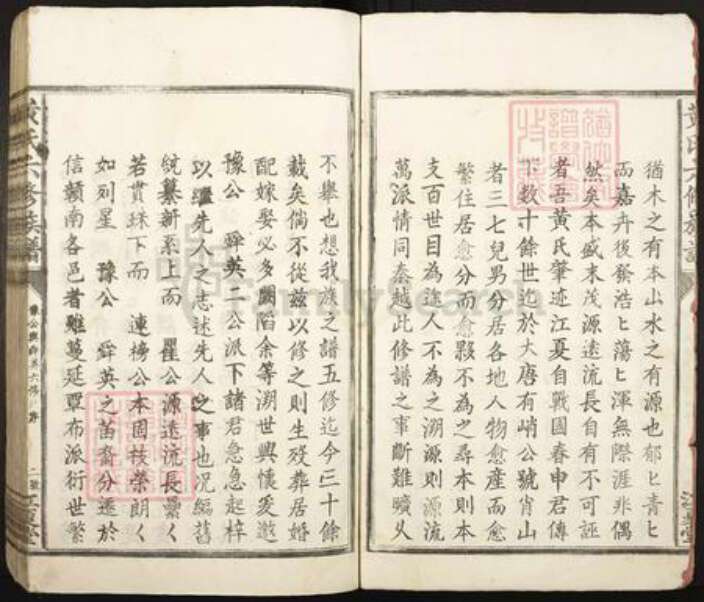 猶木之有本山水之有源也郁匕青匕
而嘉卉後發浩匕蕩匕渾無際涯非偶
然矣本盛末茂源遠流長自有不可誣
者吾黃氏肇迹江夏自戰國春申君傳
下数十餘世迄於大唐有峭公號肖山
者三七兒男分居各地人物愈產而愈
繁住居愈分而愈夥不為之尋本則本
支百世目為途人不為之溯源則源流
萬派情同秦越此修譜之事斷難曠乆
不舉也想我族之譜五修迄今三十餘
載矣倘不從茲以修之則生殁葬居婚
配嫁娶必多闕陷余等溯世興懷爰邀
豫公 舜英二公派下諸君急急起梓
以繼先人之志述先人之事也况編舊
統纂新系上而 壨公源遠流長纍く
若貫珠下而 連榜公本固枝榮朗く
如列星 豫公 舜英之苗裔分遷於
信贛南各邑者雖蔓延覃布派衍世繁
黃氏六修族譜
序
二號
江夏堂
FamilySearch